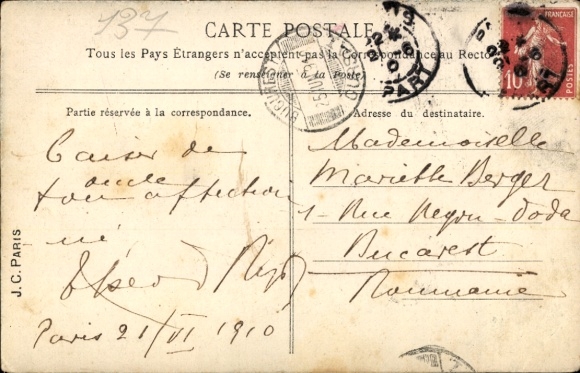 137
CARTE POSTALE
Tous les Pays Étrangers n'acceptent pas la Correspondance au Recto
(Se renseigner à la Poste)
Partie réservée à la correspondance.
Baiser de
ton oncle
affection
né
Paris 21/VI 1910
Adresse du destinataire.
Mademoiselle
Mariette Berger
1 - Rue Negru-Voda
Bucarest
Roumanie
J. C. PARIS
10
PARIS
DÉPART
BUCURESTI
25 IUN